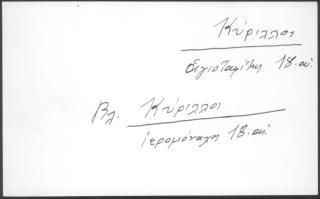 Κύριλλος
ἁγιοταφίτης 18 αἰ.
Βλ. Κύριλλος
ἱερομόναχος 18 αἰ.